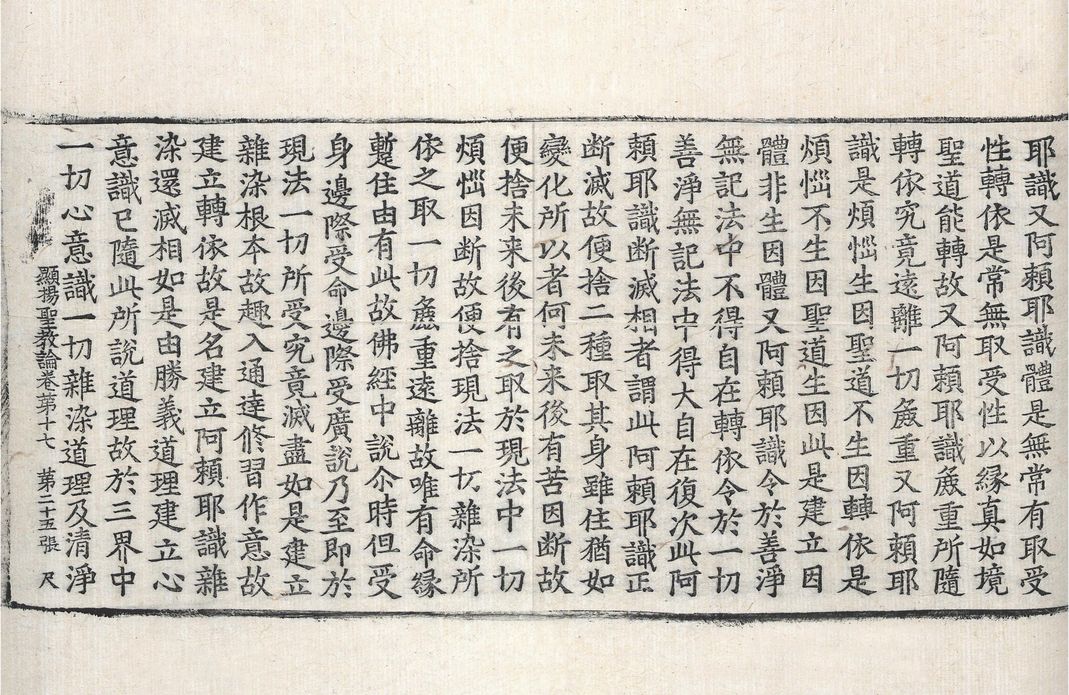 耶識又阿賴耶識體是無常有取受
性轉依是常無取受性以縁真如境
聖道能轉故又阿賴耶識麁重所隨
轉依究竟遠離一切麁重又阿賴耶
識是煩惱生因聖道不生因轉依是
煩惱不生因聖道生因此是建立因
體非生因體又阿賴耶識令於善淨
無記法中不得自在轉依令於一切
善淨無記法中得大自在復次此阿
賴耶識断滅相者謂此阿賴耶識正
断滅故便捨二種取其身雖住猶如
變化所以者何未来後有苦因断故
便捨未来後有之取於現法中一切
煩惱因断故便捨現法一切雜染所
依之取一切麁重逺離故唯有命縁
蹔住由有此故佛經中說尒時但受
身邊際受命邊際受廣說乃至即於
現法一切所受究竟滅盡如是建立
雜染根本故趣入通達修習作意故
建立轉依故是名建立阿賴耶識雜
染還滅相如是由勝義道理建立心
意識已隨此所說道理故於三界中
一切心意識一切雜染道理及清淨
顯揚聖教論卷苐十七 苐二十五張 尺